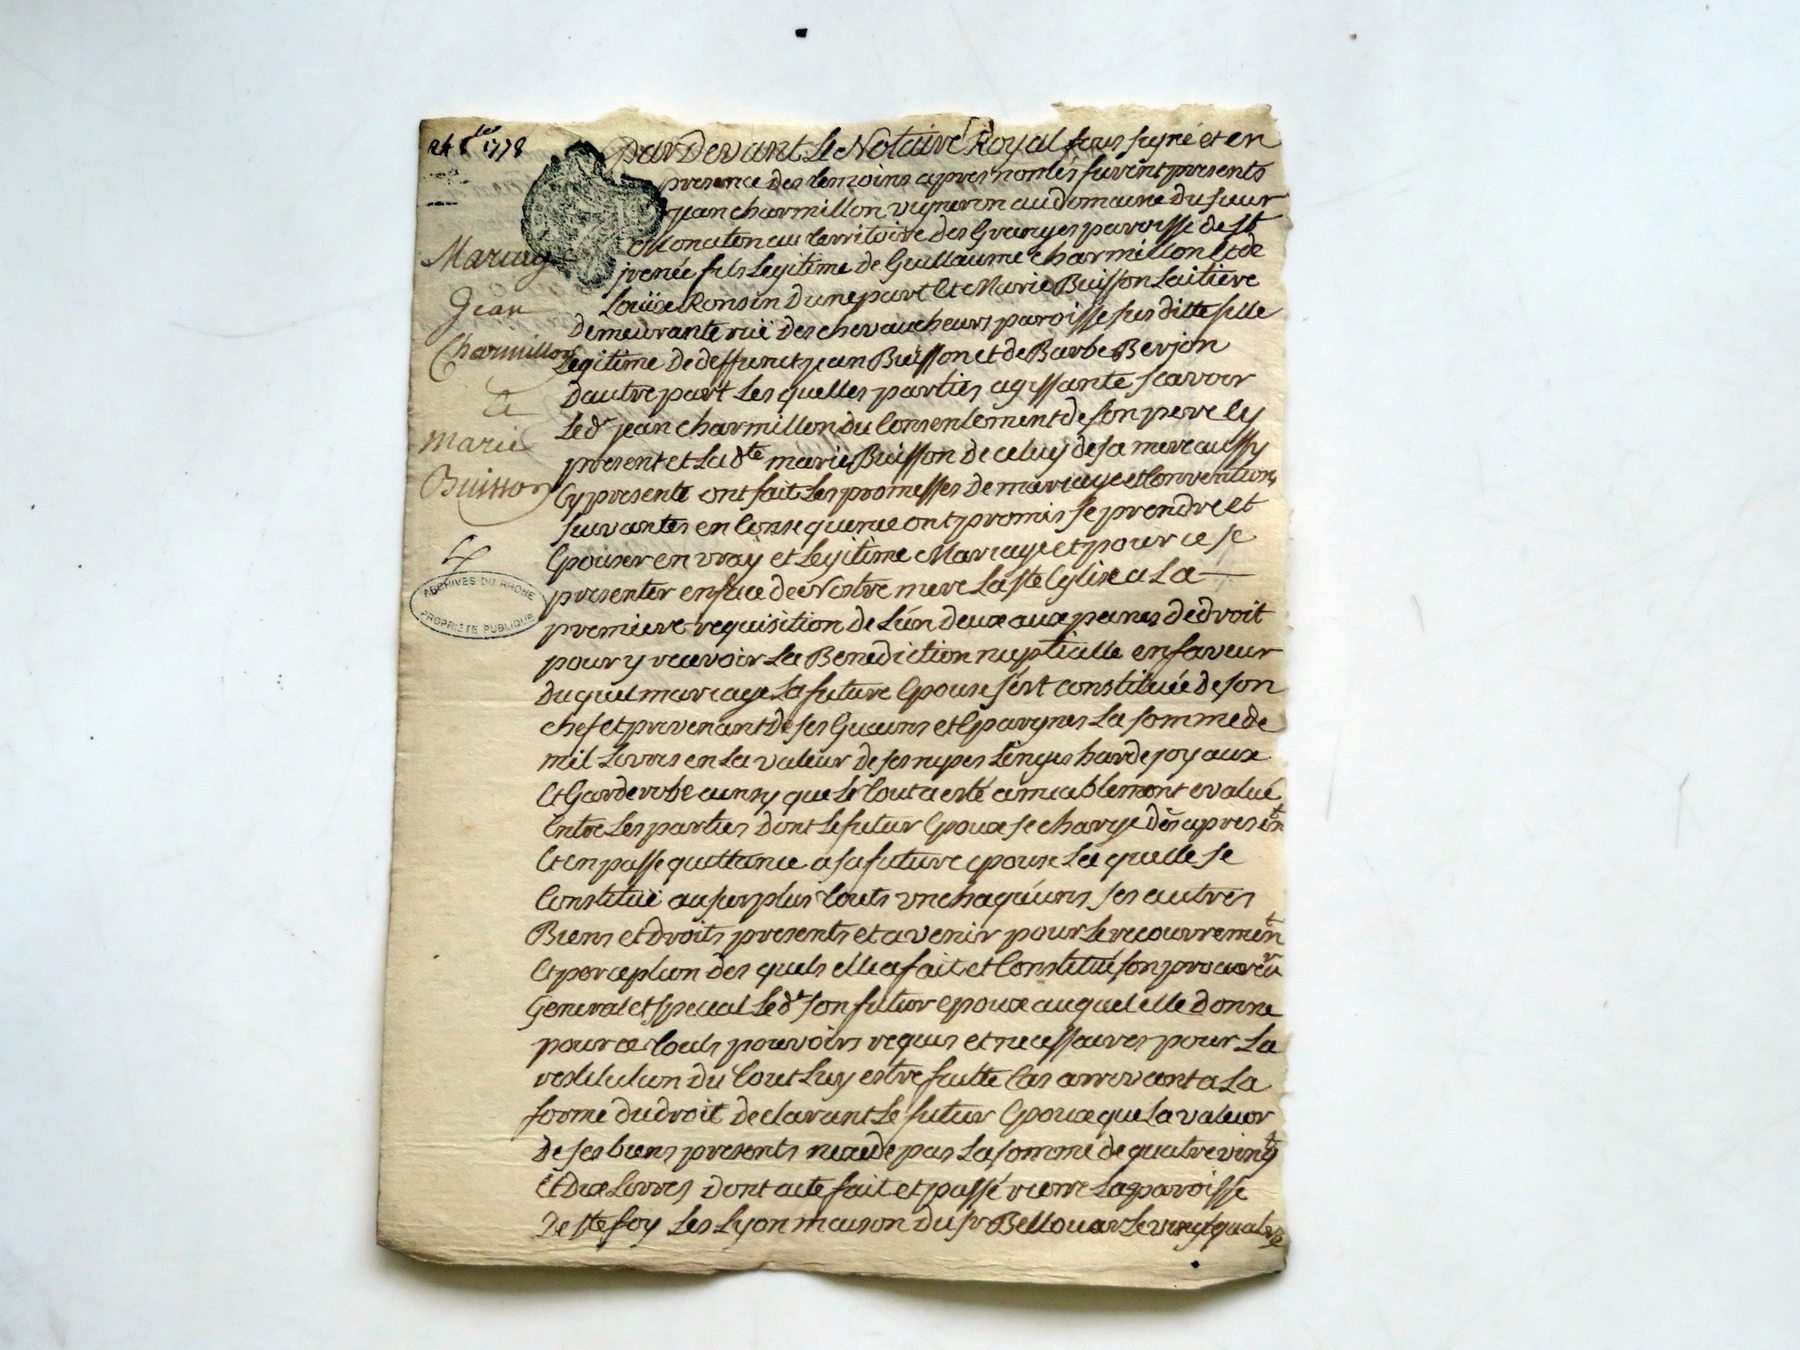 24 8bre 1778
Mariage
Jean
Charmillon
et
Marie
Buisson
ARCHIVES DU RHONE
PROPRIÉTÉ PUBLIQUE
Par Devant Le Notaire Royal sous signé et en
presence des temoins apres només furent presents
jean charmillon vigneron au domaine du sieur
Monaton au territoire des Granges paroisse de St
jrenée fils Legitime de Guillaume charmillon et de
Loüise Ronsin d'une part Et Marie Buisson Laitiere
demeurante rüe des chevaucheurs paroisse sus ditte fille
Legitime de deffunct jean Buisson et de Barbe Berjon
d'autre part Les quelles parties agissante scavoir
Led. jean charmillon du Consentement de son pere Cy
present et La dte marie Buisson de celuy de sa mere aussy
Cy presente ont fait Les promesses de mariage et Conventions
suivantes en Consequence ont promis se prendre et
Epouser en vray et Legitime Mariage et pour ce se
presenter en face de Nostre mere La ste Eglise a La
premiere requisition de L'un deux aux peines de droit
pour y recevoir La Benediction nuptialle en faveur
du quel mariage La future Epouse s'est constituée de son
chef et provenant de ses Guains et Epargnes La somme de
mil Livres en La valeur de ses nipes Linges harde joyaux
Et Garderobe ainsy que Le tout a esté amiablement evalué
Entre Les parties dont Le futur Epoux se charge dès apresent
Et en passe quittance a sa future epouse La quelle se
Constitüe au surplus touts un chaquuns ses autres
Biens et droits presents et avenir pour Le recouvrement
Et perception des quels elle a fait et Constitué son procureur
General et special Led. son futur epoux auquel elle donne
pour ce touts pouvoirs requis et necessaires pour La
restitution du tout Luy estre faitte Cas arrivant a La
forme du droit declarant Le futur Epoux que La valeur
de ses biens presents nexede pas La somme de quatre vingt
Et dix Livres dont acte fait et passé riere La paroisse
de ste foy Les Lyon maison du sr Bellouar Le vingt quatre